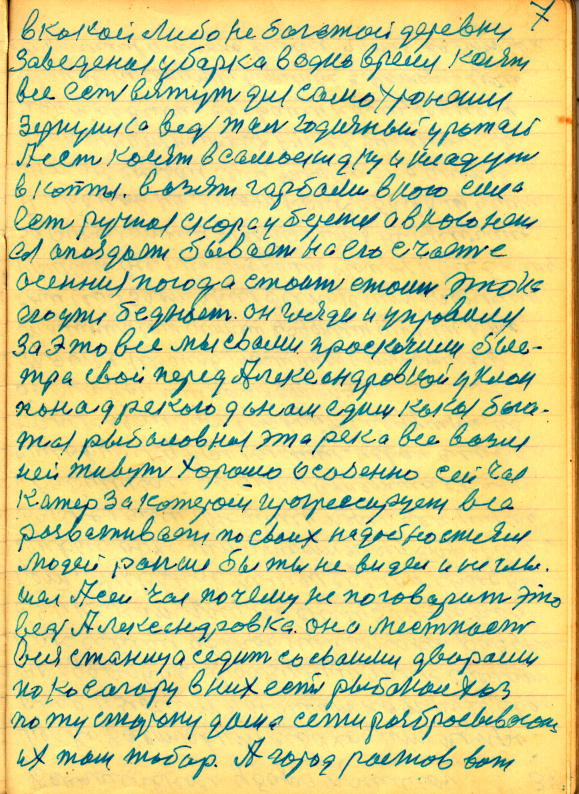 7
в какой либо не богатой деревни
заведеная уборка в одно время косят
все есть вяжут для само хронении
зернушка ведь там годичный урожай
А есть косят в самоскидку и кладуть
в копны. возят гарбами в кого сила
есть ручная скора и береть а в кого нет
опоздает бывает на его счастье
осенния погода стоит стоит это на
его ути бедность. он гляди и управилси
За это все мы с вами проскочили быс-
тра свой перед Александровкой уклон
по над рекою доном едим какая бога-
тая рыболовная эта река все возли
ней живут хорошо особенно сей час
катер за катером прогрессирует вса
розваживает по своих надобностями
людей раньше бы ты не видел и не слы.
шел А сей час почему не поговарить это
ведь Александровка. она местность
вся станица седит со своими дворами
по косагору в них есть рыбачии хоз
по ту сторону дона сети розбросывають
их там табор. А город ростов вот